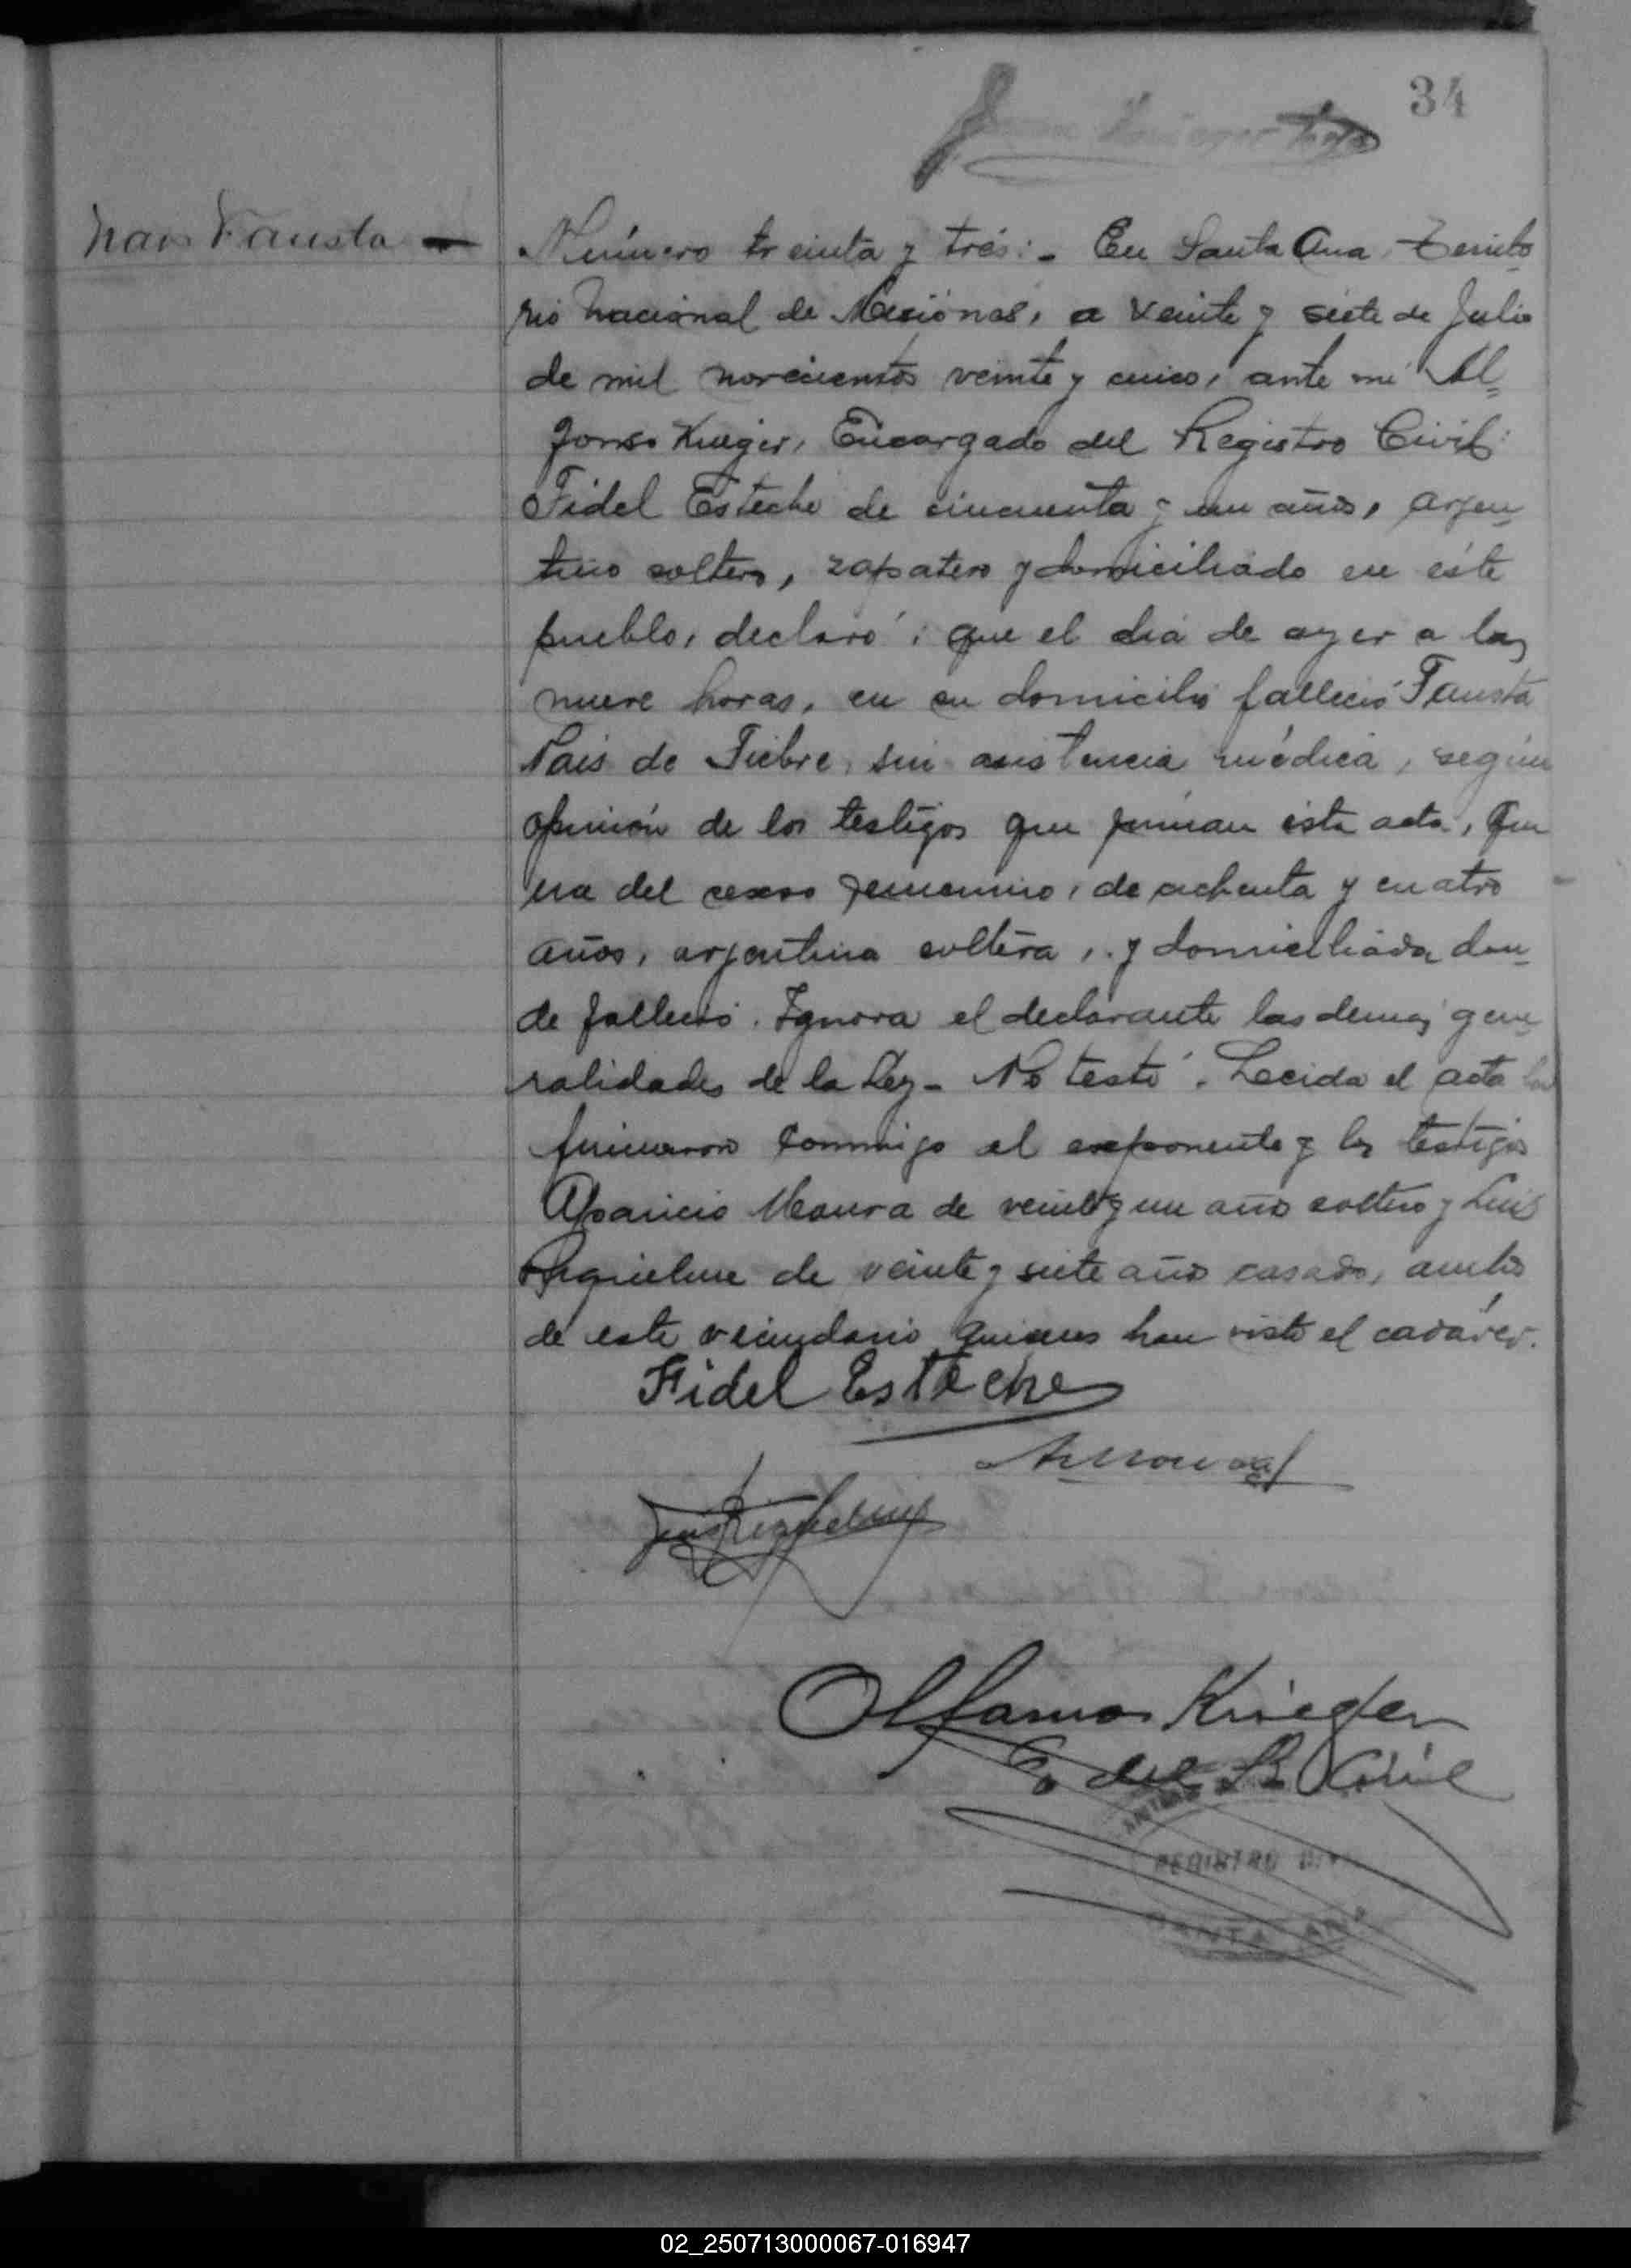 34
Nais Fausta —
Número treinta y trés:- En Santa Ana, Territo
rio Nacional de Misiones, a veinte y siete de Julio
de mil novecientos veinte y cinco, ante mi Al=
fonso Krieger, Encargado del Registro Civil:
Fidel Esteche de cincuenta y un años, argen
tino soltero, zapatero y domiciliado en éste
pueblo, declaró: que el dia de ayer a las
nueve horas, en su domicilio falleció Fausta
Nais de Fiebre, sin asistencia médica, según
opinión de los testigos que firman ésta acta, que
era del sexso femenino, de ochenta y cuatro
años, argentina soltera, y domiciliada don
de falleció. Ignora el declarante las demas gene
ralidades de la Ley- No testó. Leeida el acta la
firmaron conmigo el exponente y los testigos
Aparicio Moura de veinte y un año soltero y Luis
Riquelme de veinte y siete año casado, ambos
de este vecindario quienes han visto el cadáver.
Fidel Esteche
Luis Riquelme
Alfonso Krieger
E. del R. Civil
REGISTRO CIVIL
SANTA ANA
02_250713000067-016947